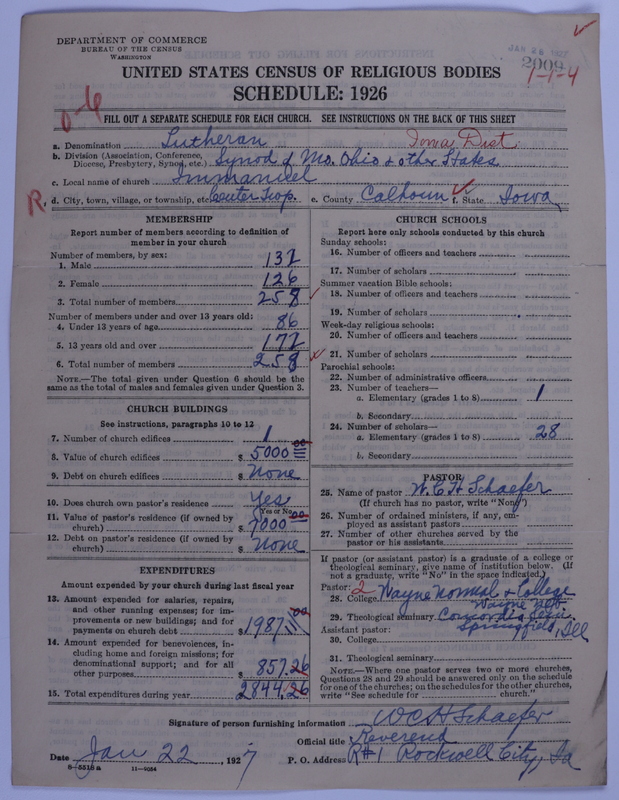 DEPARTMENT OF COMMERCE
BUREAU OF THE CENSUS
WASHINGTON
JAN 26 1927
2009
1-1-4
UNITED STATES CENSUS OF RELIGIOUS BODIES
SCHEDULE: 1926
0-6
FILL OUT A SEPARATE SCHEDULE FOR EACH CHURCH. SEE INSTRUCTIONS ON THE BACK OF THIS SHEET
a. Denomination Lutheran Iowa Dist.
b. Division (Association, Conference, Diocese, Presbytery, Synod, etc.) Synod of Mo. Ohio & other States
c. Local name of church Immanuel
R. d. City, town, village, or township, etc. Center Twp. e. County Calhoun f. State Iowa
MEMBERSHIP
Report number of members according to definition of
member in your church
Number of members, by sex:
1. Male 132
2. Female 126
3. Total number of members 258
Number of members under and over 13 years old:
4. Under 13 years of age 86
5. 13 years old and over 172
6. Total number of members 258
NOTE.—The total given under Question 6 should be
same as the total of males and females given under Question 3.
CHURCH BUILDINGS
See instructions, paragraphs 10 to 12
7. Number of church edifices 1
8. Value of church edifices $ 5000 00
9. Debt on church edifices $ None
10. Does church own pastor's residence Yes
(Yes or No)
11. Value of pastor's residence (if owned by
church) $ 7000 00
12. Debt on pastor's residence (if owned by
church) $ None
EXPENDITURES
Amount expended by your church during last fiscal year
13. Amount expended for salaries, repairs,
and other running expenses; for im-
provements or new buildings; and for
payments on church debt $ 1987 00
14. Amount expended for benevolences, in-
cluding home and foreign missions; for
denominational support; and for all
other purposes $ 857.26
15. Total expenditures during year $ 2844.26
CHURCH SCHOOLS
Report here only schools conducted by this church
Sunday schools:
16. Number of officers and teachers
17. Number of scholars
Summer vacation Bible schools:
18. Number of officers and teachers
19. Number of scholars
Week-day religious schools:
20. Number of officers and teachers
21. Number of scholars
Parochial schools:
22. Number of administrative officers
23. Number of teachers—
a. Elementary (grades 1 to 8) 1
b. Secondary
24. Number of scholars—
a. Elementary (grades 1 to 8) 28
b. Secondary
PASTOR
25. Name of pastor W. C. H. Schaefer
(If church has no pastor, write "None")
26. Number of ordained ministers, if any, em-
ployed as assistant pastors
27. Number of other churches served by the
pastor or his assistants
If pastor (or assistant pastor) is a graduate of a college or
theological seminary, give name of institution below. (If
not a graduate, write "No" in the space indicated.)
Pastor: 2
28. College Wayne Normal & College
Wayne Neb
29. Theological seminary Concordia Sem.
Springfield, Ill
Assistant pastor:
30. College
31. Theological seminary
NOTE.—Where one pastor serves two or more churches,
Questions 28 and 29 should be answered only on the schedule
for one of the churches; on the schedules for the other churches,
write "See schedule for church."
Signature of person furnishing information W C H Schaefer
Official title Reverend
Date Jan 22, 1927 P. O. Address R#1 Rockwell City, Ia
8-5518a 11-9054